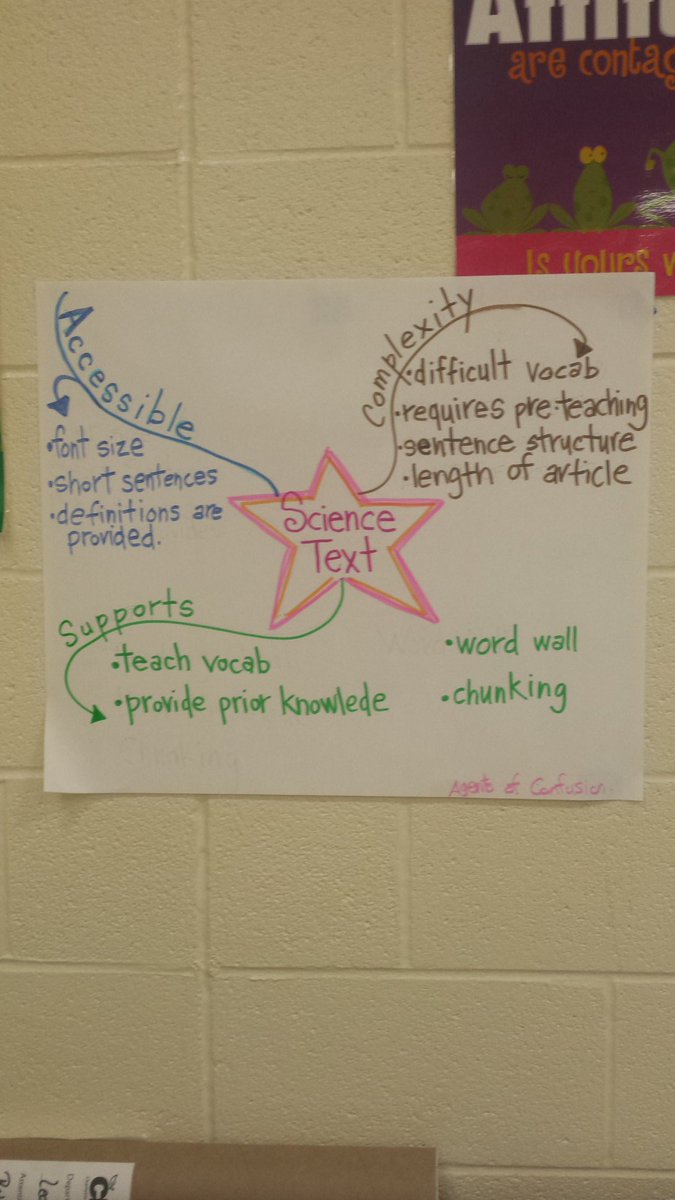 are contag
Is yours w
Accessible
•font size
•short sentences
•definitions are
provided.
Complexity
•difficult vocab
•requires pre-teaching
•sentence structure
•length of article
Science
Text
Supports
•teach vocab
•provide prior knowlede
•word wall
•chunking
Agents of Confusion